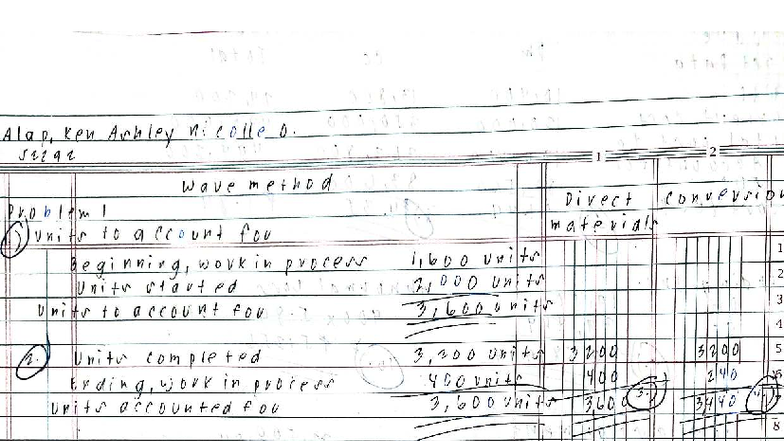 Alap, Ken Ashley Nicolle O.
S2292
1 2
Wave method
Direct materials
Conversion
Problem 1
1. Units to account for
Beginning, work in process 1,600 units
Units started 2,000 units
Units to account for 3,600 units
2. Units completed 3,200 units 3200 3200
Ending, work in process 400 units 400 240
Units accounted for 3,600 units 3,600 3. 3440 4.
1
2
3
4
5
6
8